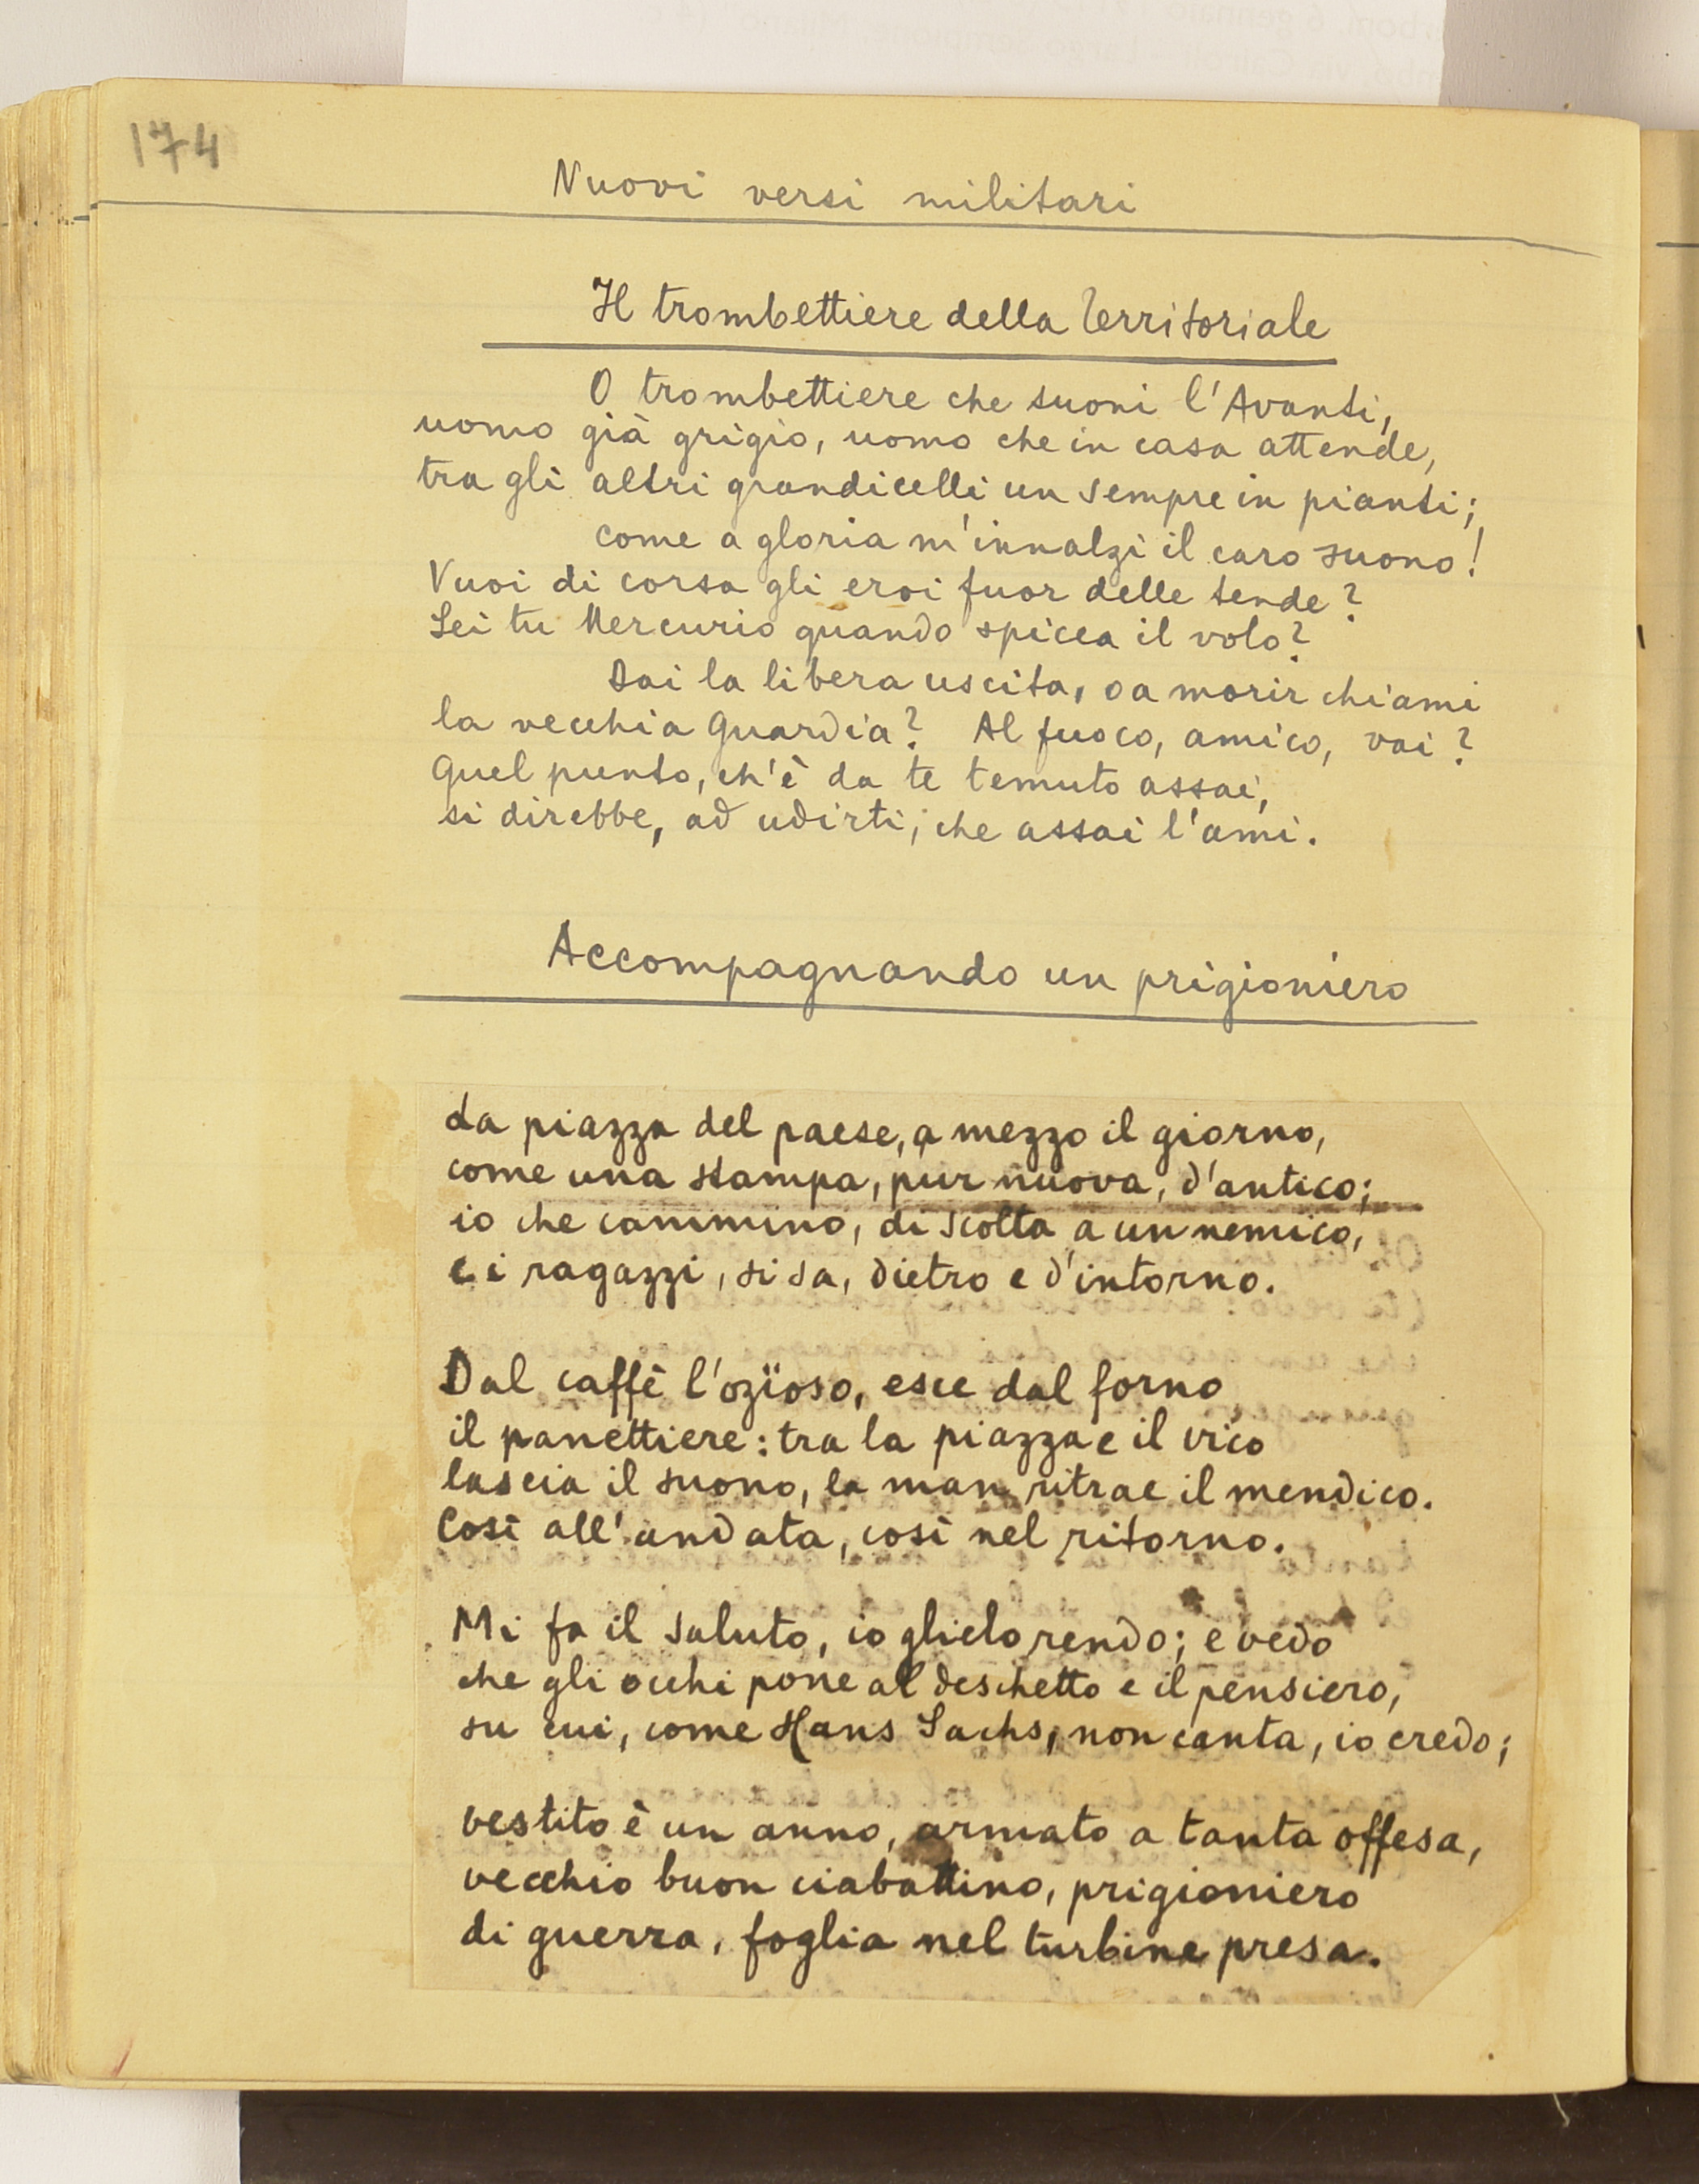 174
Nuovi versi militari
Il trombettiere della Territoriale
O trombettiere che suoni l'Avanti,
uomo già grigio, uomo che in casa attende,
tra gli altri grandicelli un sempre in pianti;
come a gloria m'innalzi il caro suono!
Vuoi di corsa gli eroi fuor delle tende?
Sei tu Mercurio quando spicca il volo?
Dai la libera uscita, o a morir chiami
la vecchia Guardia? Al fuoco, amico, vai?
Quel punto, ch'è da te temuto assai,
si direbbe, ad udirti, che assai l'ami.
Accompagnando un prigioniero
La piazza del paese, a mezzo il giorno,
come una stampa, pur nuova, d'antico;
io che cammino, di scolta a un nemico,
e i ragazzi, si sa, dietro e d'intorno.
Dal caffè l'ozïoso, esce dal forno
il panettiere: tra la piazza e il vico
lascia il suono, la man ritrae il mendico.
Così all'andata, così nel ritorno.
Mi fa il saluto, io glielo rendo; e vedo
che gli occhi pone al deschetto e il pensiero,
su cui, come Hans Sachs, non canta, io credo;
vestito è un anno, armato a tanta offesa,
vecchio buon ciabattino, prigioniero
di guerra, foglia nel turbine presa.